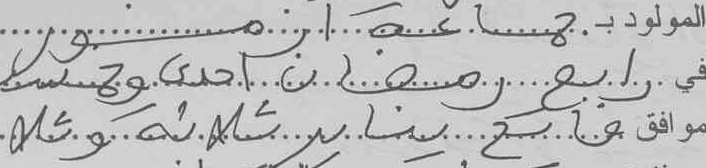 المولود بـ جماعة ارزمنبور
في رابع رمضان احدى وخمسـ
موافق فاتح يناير ثلاثة وثلا